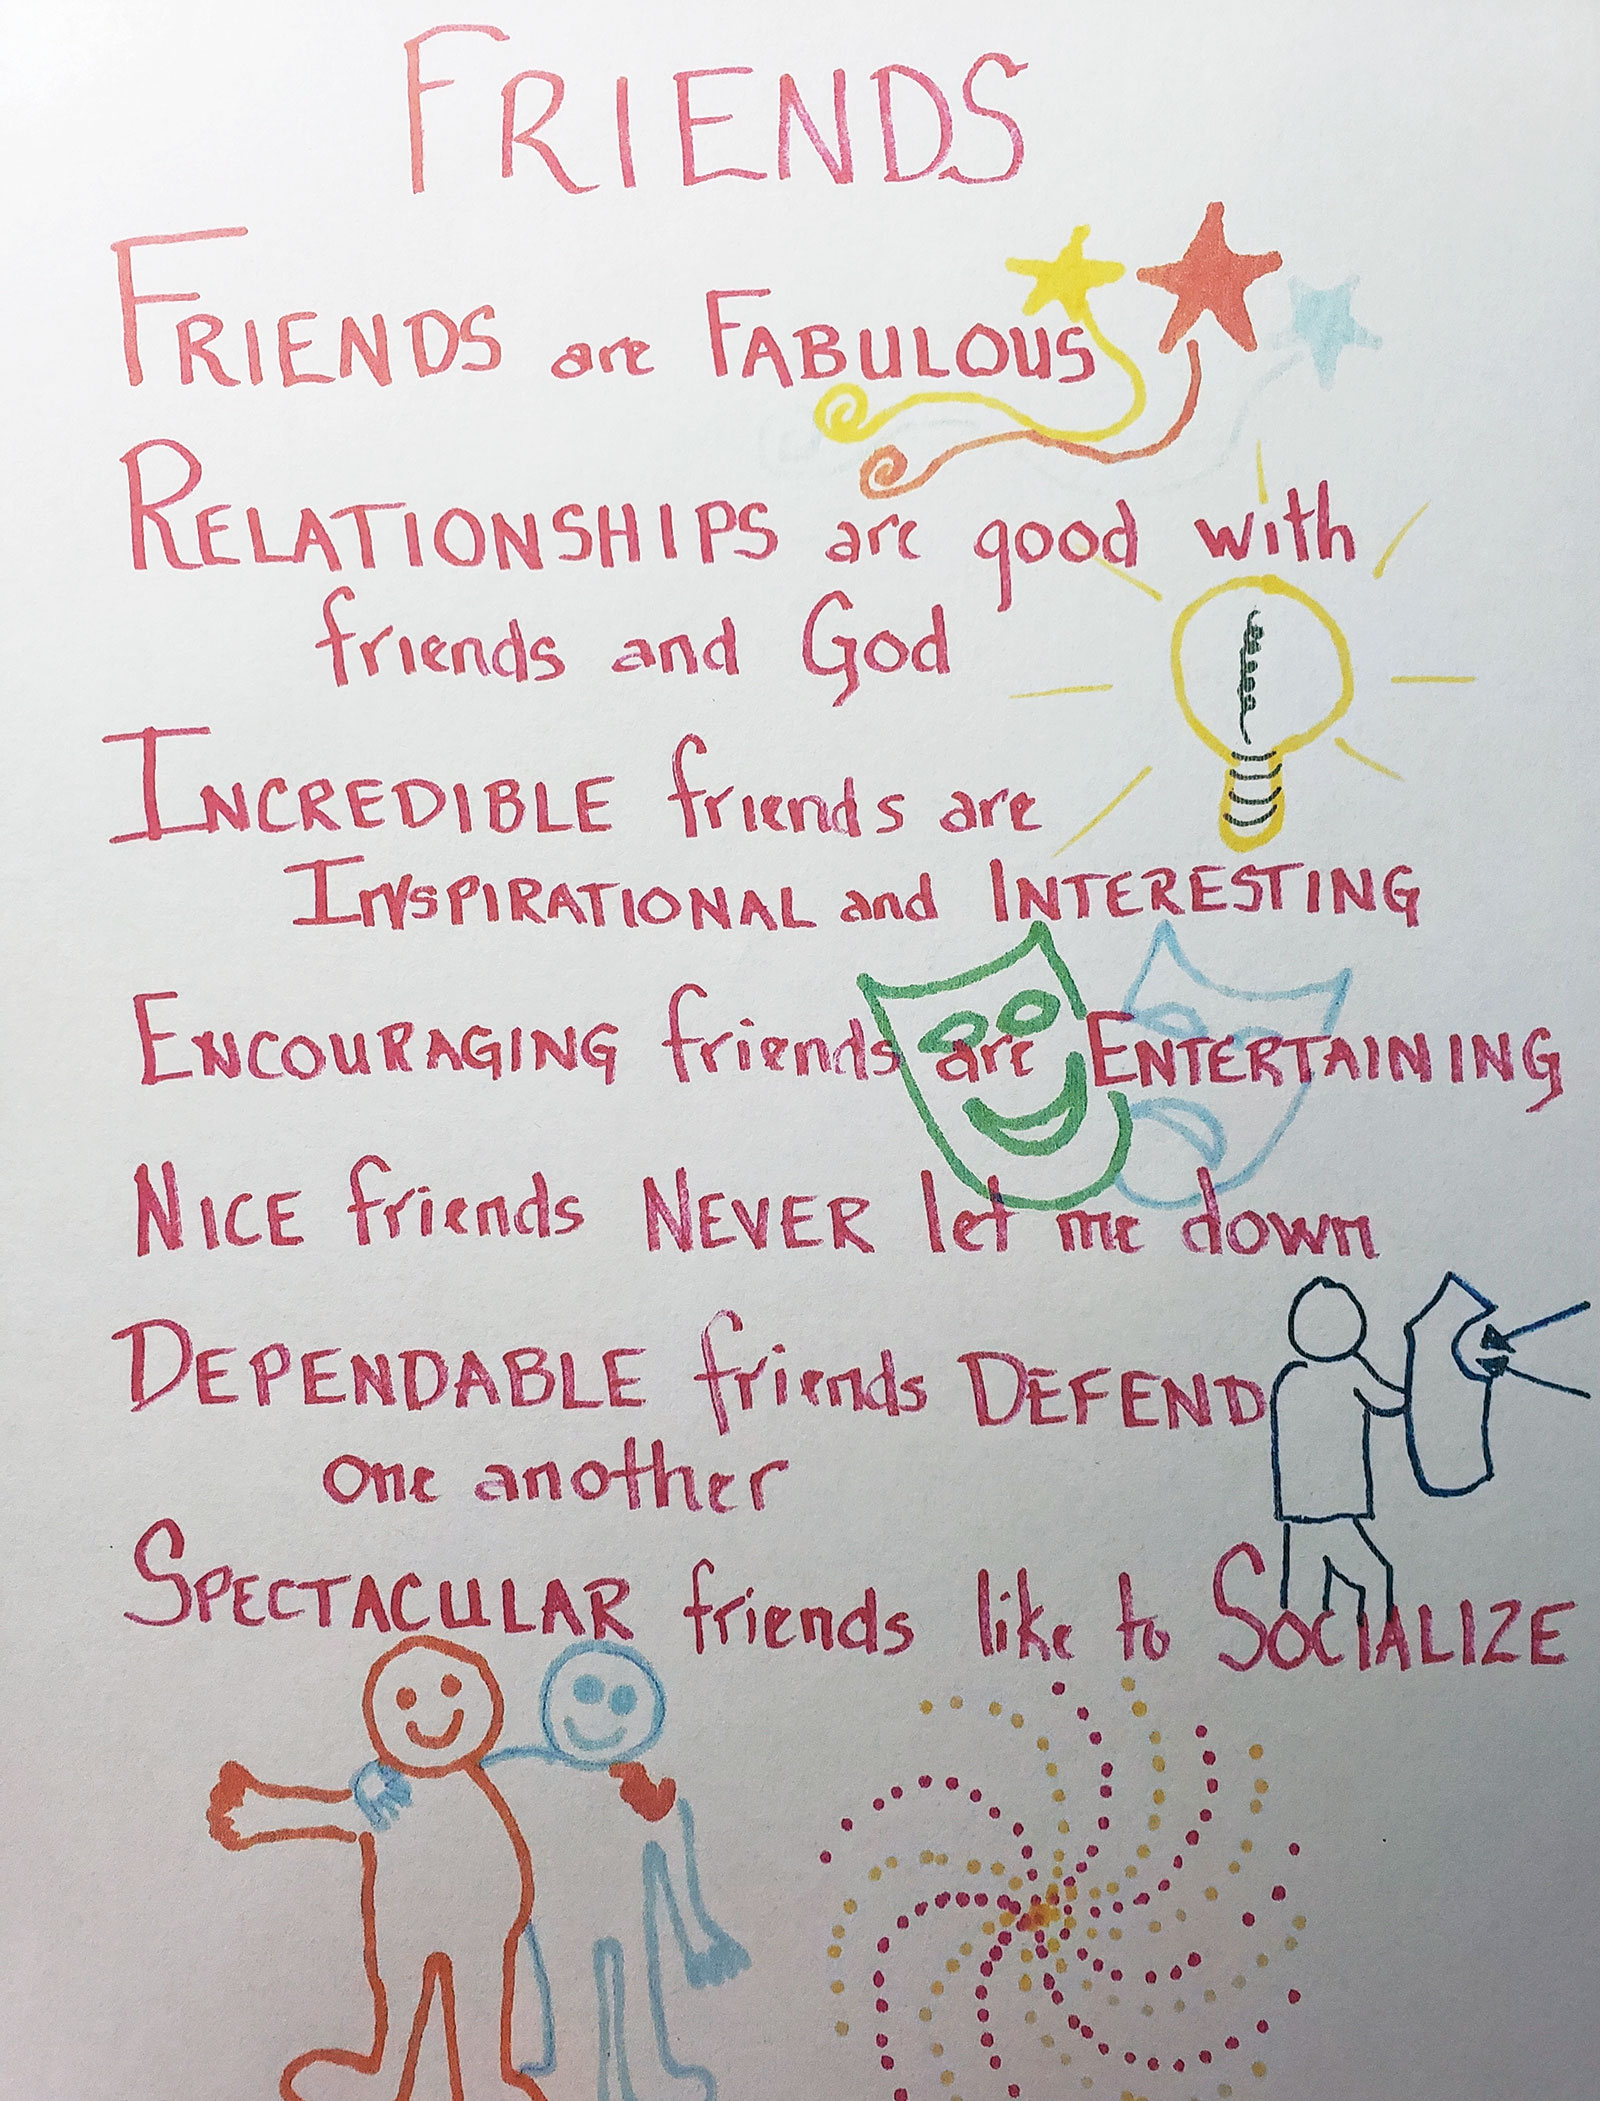 FRIENDS
FRIENDS are FABULOUS
RELATIONSHIPS are good with
friends and God
INCREDIBLE friends are
INSPIRATIONAL and INTERESTING
ENCOURAGING friends are ENTERTAINING
NICE friends NEVER let me down
DEPENDABLE friends DEFEND
one another
SPECTACULAR friends like to SOCIALIZE